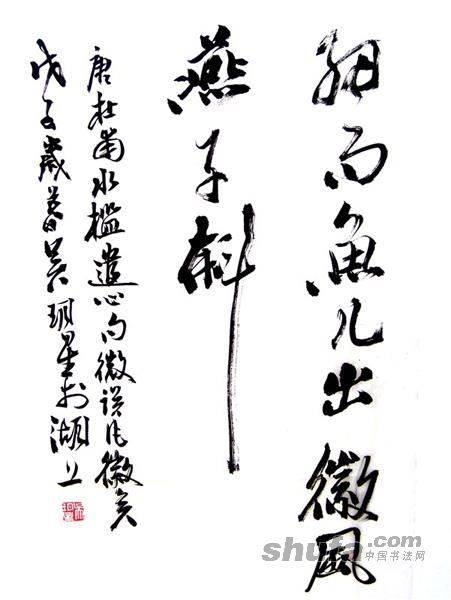 细雨魚儿出徽风
燕子斜
唐杜甫水槛遣心句微误作徽矣
戊子歲暮吴玥星於湖上
shufa.com
中国书法网